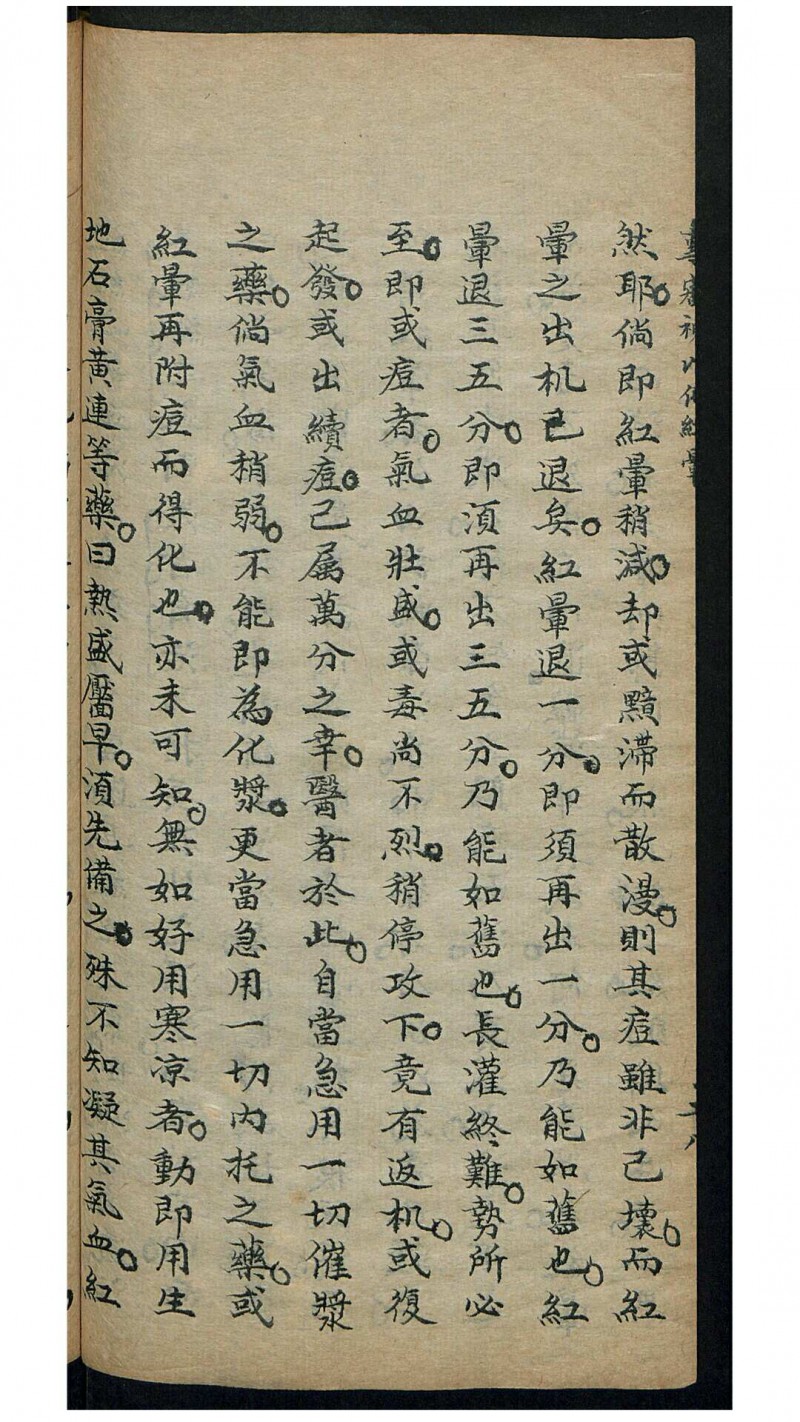 然耶倘即紅暈稍減却或黯滯而散漫則其痘雖非已壞而紅
暈之出机已退矣紅暈退一分即須再出一分乃能如舊也紅
暈退三五分即湏再出三五分乃能如舊也長灌終難勢所必
至即或痘者氣血壯盛或毒尚不烈稍停攻下竟有返机或復
起發或出續痘已属萬分之幸醫者於此自當急用一切催漿
之藥倘氣血稍弱不能即為化漿更當急用一切內托之藥或
紅暈再附痘而得化也亦未可知無如好用寒凉者動即用生
地石膏黄連等藥曰熱盛靨早湏先備之殊不知凝其氣血紅